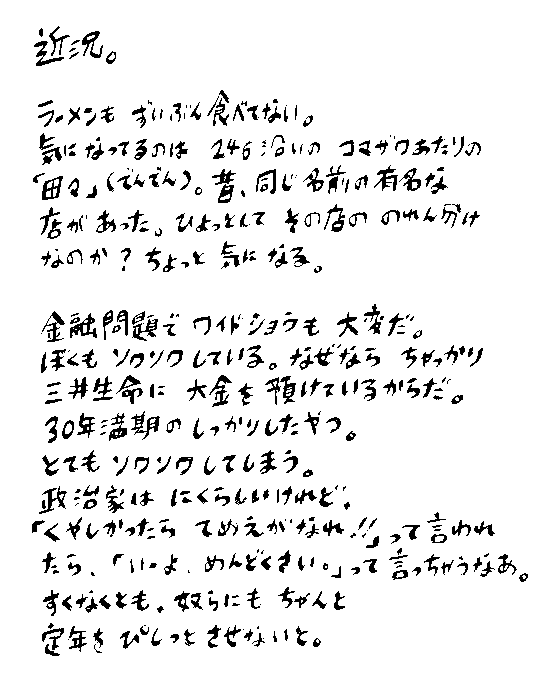 近況。
ラーメンも ずいぶん食べてない。
気になってるのは 246沿いの コマザワあたりの
「田々」(でんでん)。昔、同じ名前の有名な
店があった。ひょっとして その店の のれん分け
なのか？ ちょっと 気になる。
金融問題で ワイドショウも 大変だ。
ぼくも ソワソワしている。なぜなら ちゃっかり
三井生命に 大金を 預けているからだ。
30年満期の しっかりしたやつ。
とても ソワソワしてしまう。
政治家は にくらしいけれど、
「くやしかったら てめえがなれ!!」って言われ
たら、「いーよ、めんどくさい。」って 言っちゃうなあ。
すくなくとも、奴らにも ちゃんと
定年を ぴしっと させないと。